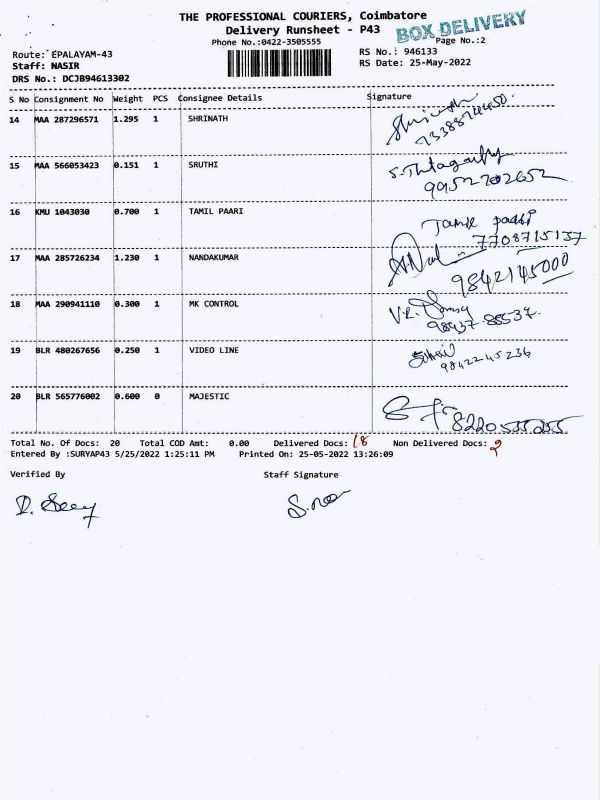 THE PROFESSIONAL COURIERS, Coimbatore
Delivery Runsheet - P43
BOX DELIVERY
Phone No.:0422-3505555
Page No.:2
Route: EPALAYAM-43
RS No.: 946133
Staff: NASIR
RS Date: 25-May-2022
DRS No.: DCJB94613302
S No Consignment No Weight PCS Consignee Details Signature
14 MAA 287296571 1.295 1 SHRINATH
15 MAA 566053423 0.151 1 SRUTHI
9952702652
16 KMU 1043030 0.700 1 TAMIL PAARI Tamil paari
7708715137
17 MAA 285726234 1.230 1 NANDAKUMAR
9842145000
18 MAA 290941110 0.300 1 MK CONTROL
98437-88537
19 BLR 480267656 0.250 1 VIDEO LINE
9842245236
20 BLR 565776002 0.600 0 MAJESTIC
8220535255
Total No. Of Docs: 20 Total COD Amt: 0.00 Delivered Docs: 18 Non Delivered Docs: 2
Entered By :SURYAP43 5/25/2022 1:25:11 PM Printed On: 25-05-2022 13:26:09
Verified By Staff Signature